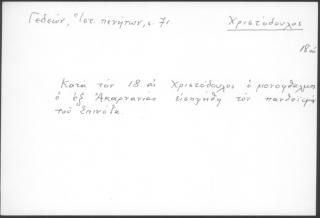 Γεδεών, Ἱστ. πενήτων, σ. 71
Χριστόδουλος
18 αἰ
Κατὰ τὸν 18 αἰ Χριστόδουλος ὁ μονόφθαλμος
ὁ ἐξ Ἀκαρνανίας εἰσηγήθη τὸν πανθεϊσμὸ
τοῦ Σπινόζα